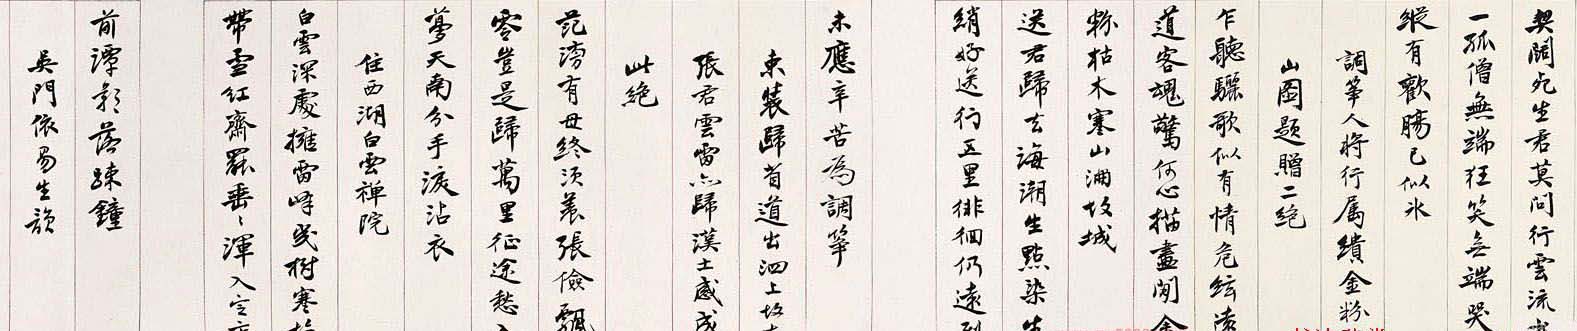 契闊死生君莫问行雲流水
一孤僧無端狂笑無端哭
縱有歡腸已似氷
調箏人将行属繢金粉
山圖题贈二绝
乍聽驪歌似有情危絃遠
道客魂驚何心描畫閒金
粉枯木寒山滿故城
送君歸去海潮生點染生
綃好送行五里徘徊仍遠别
未應辛苦為調箏
東裝歸省道出泗上故
張君雲雷亦歸漢土感成
此绝
范滂有母终須養張儉飄
零豈是歸萬里征途愁入
夢天南分手淚沾衣
住西湖白雲禅院
白雲深處擁雷峰幾树寒梅
帶雪红齋罷垂々渾入定
前潭影落疎鐘
吳門依易生韵